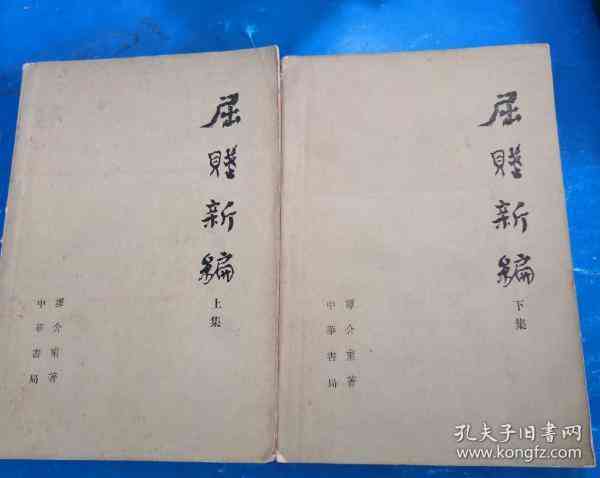 屈賦新編
上集
譚介甫著
中華書局
屈賦新編
下集
譚介甫著
中華書局
孔夫子旧书网
kongfz.com